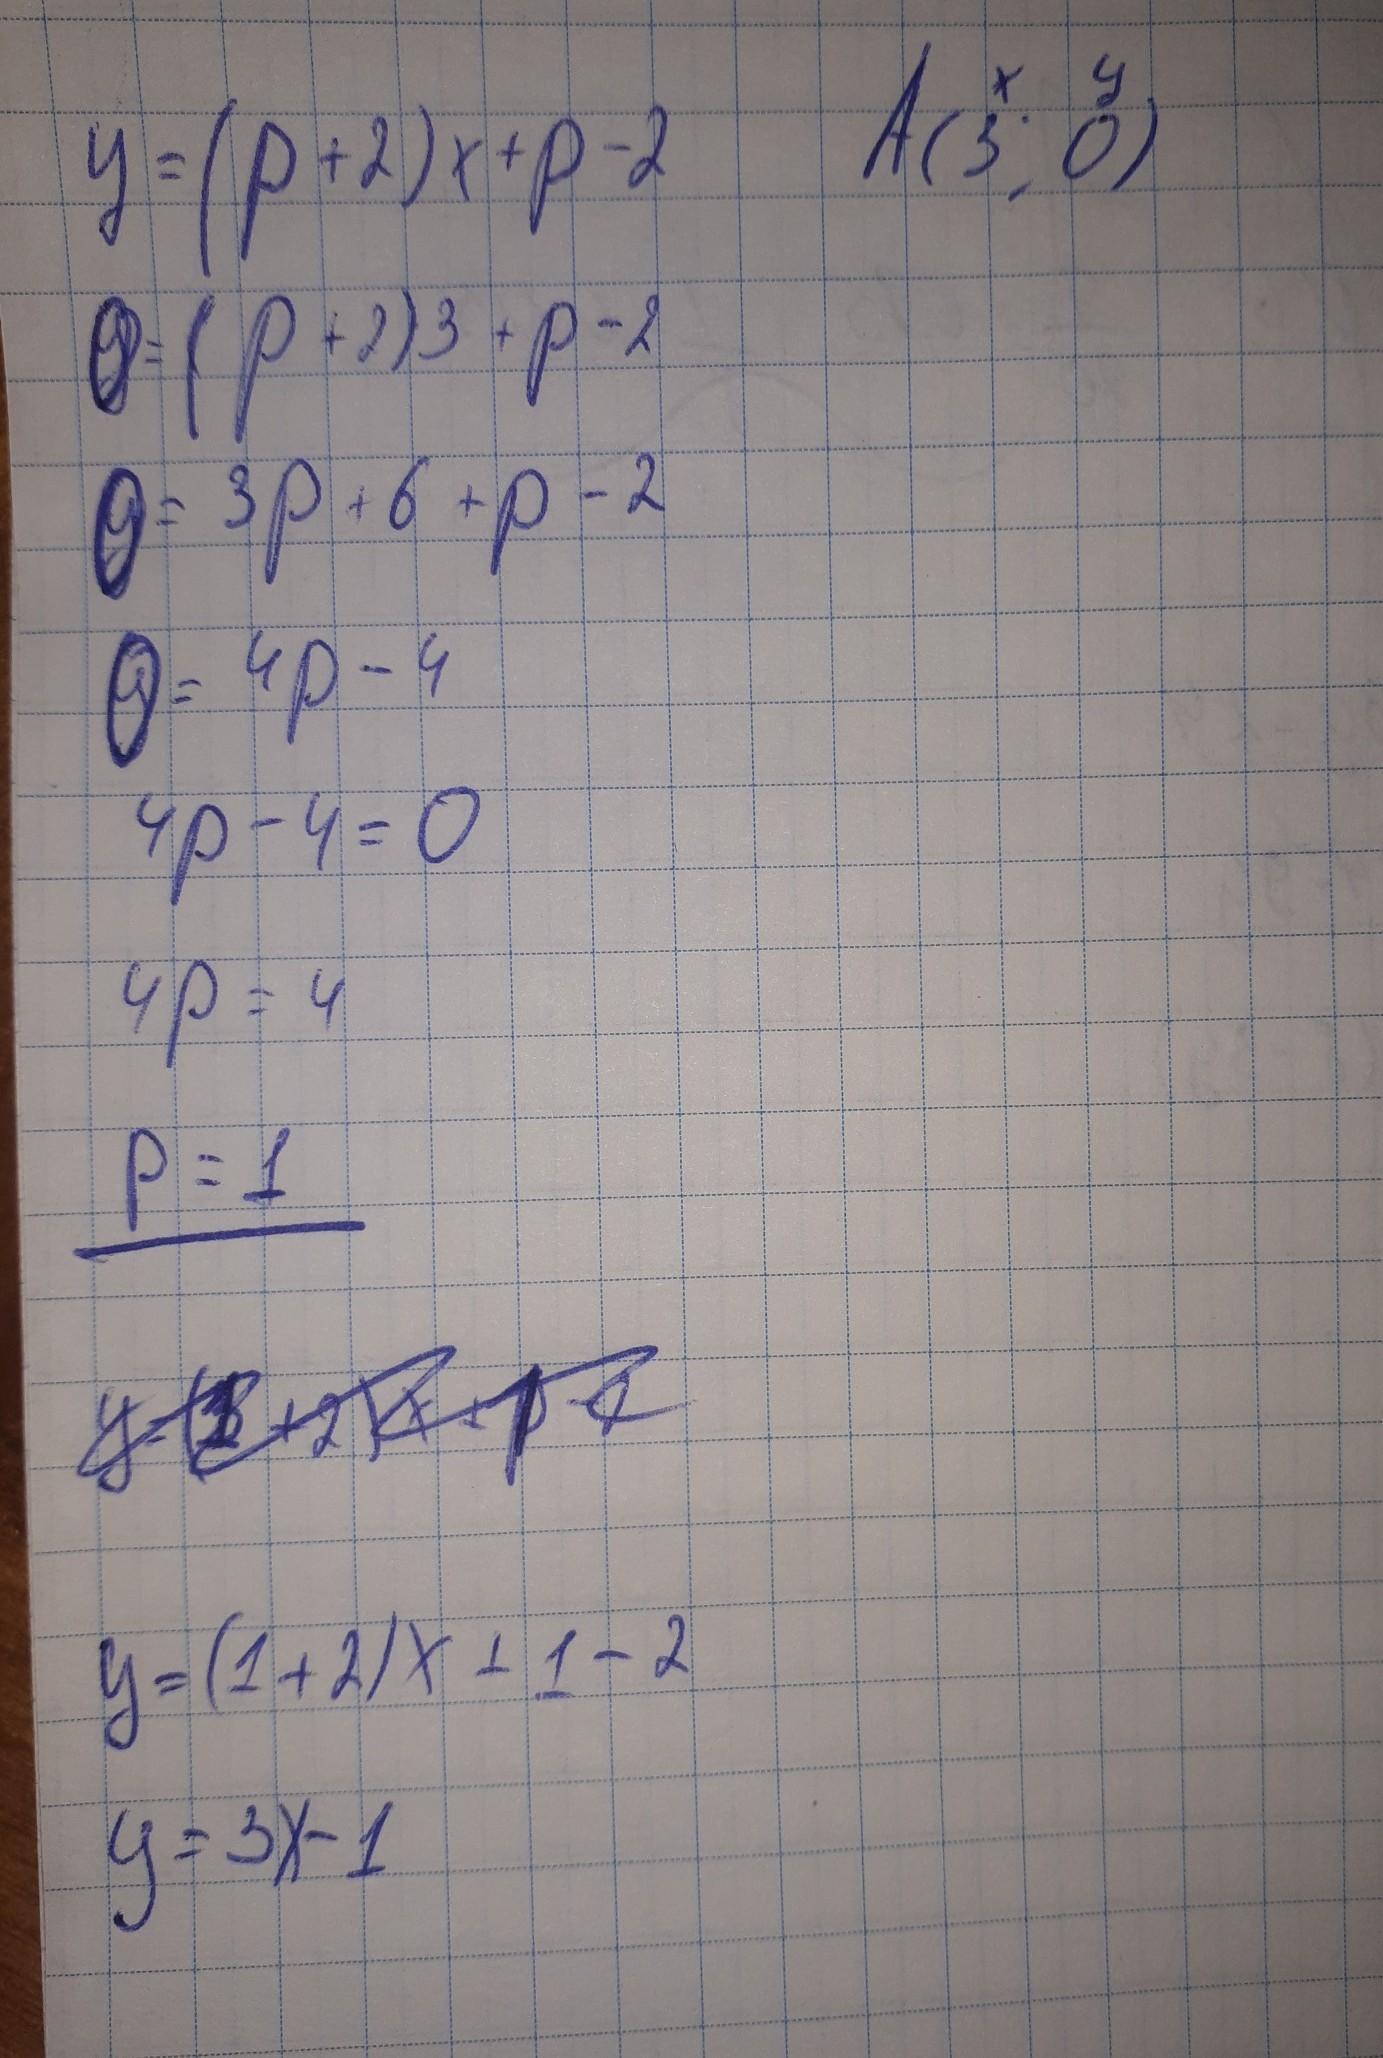 y = (p + 2)x + p - 2 A(3; 0)
x y
0 = (p + 2)3 + p - 2
0 = 3p + 6 + p - 2
0 = 4p - 4
4p - 4 = 0
4p = 4
p = 1
y = (1 + 2)x + 1 - 2
y = 3x - 1